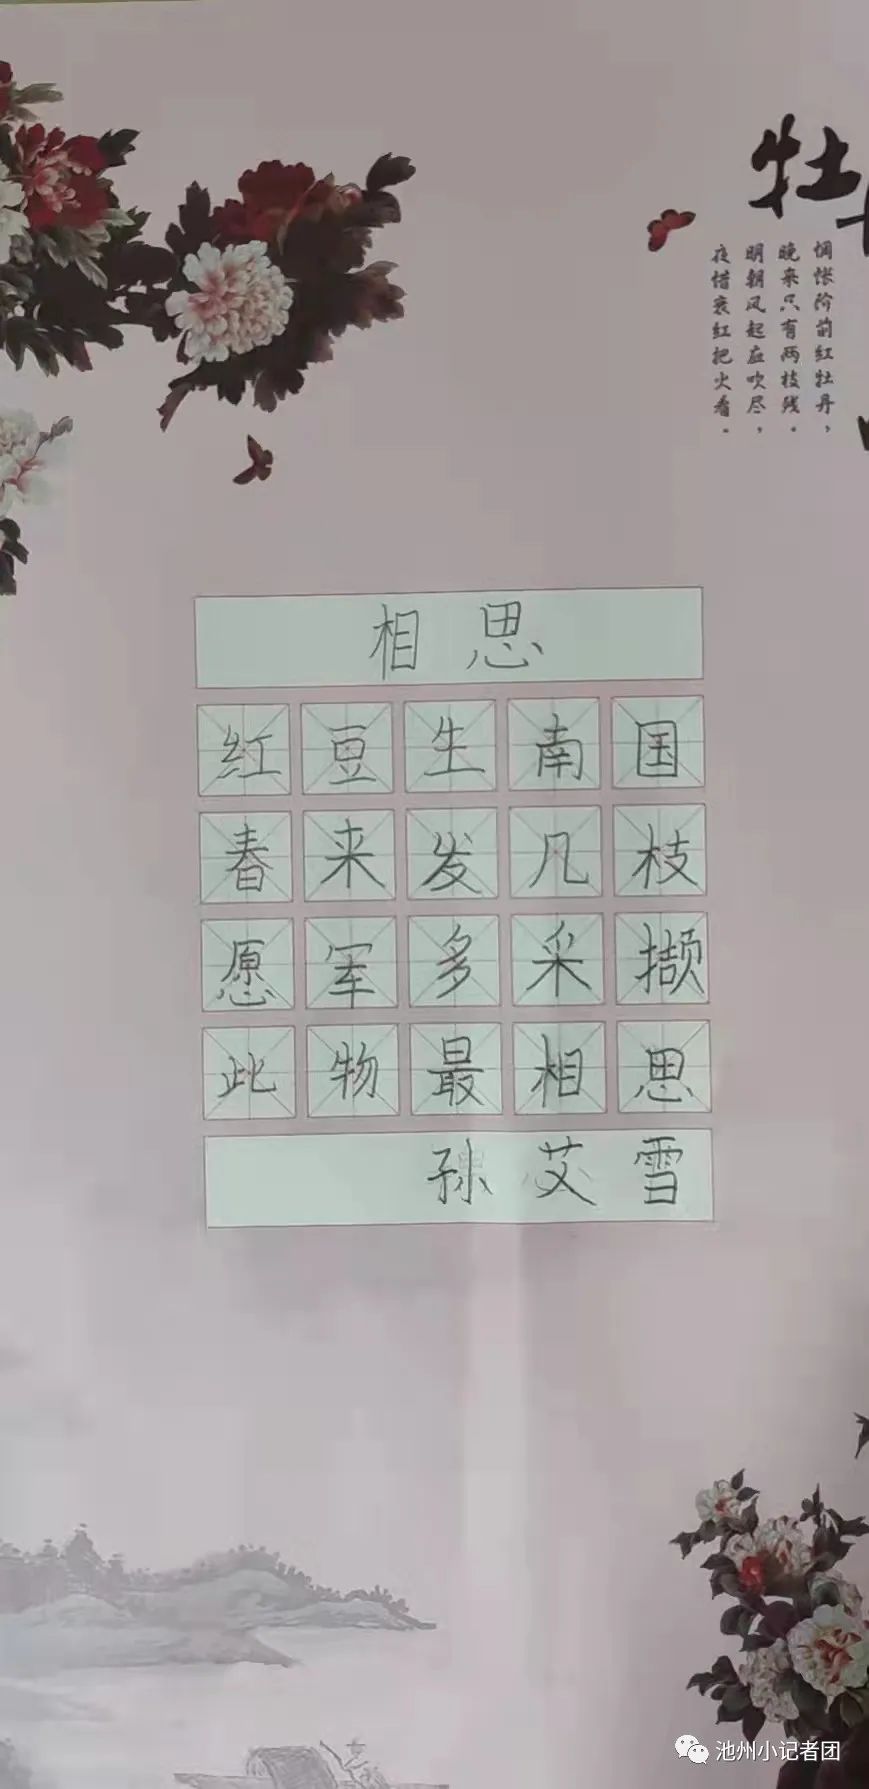 牡
惆怅阶前红牡丹，
晚来只有两枝残。
明朝风起应吹尽，
夜惜衰红把火看。
相思
红豆生南国
春来发几枝
愿军多采撷
此物最相思
孙艾雪
池州小记者团